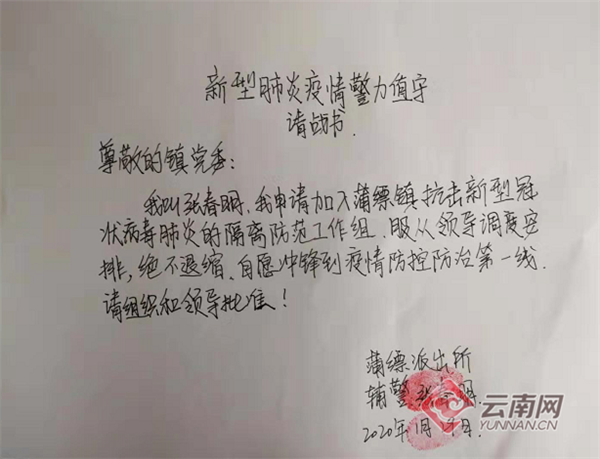 新型肺炎疫情警力值守
请战书.
尊敬的镇党委:
我叫张春明,我申请加入蒲缥镇抗击新型冠
状病毒肺炎的隔离防范工作组.服从领导调度安
排,绝不退缩.自愿冲锋到疫情防控防治第一线.
请组织和领导批准!
蒲缥派出所
辅警 张 明.
2020年1月 日.
云南网
YUNNAN.CN